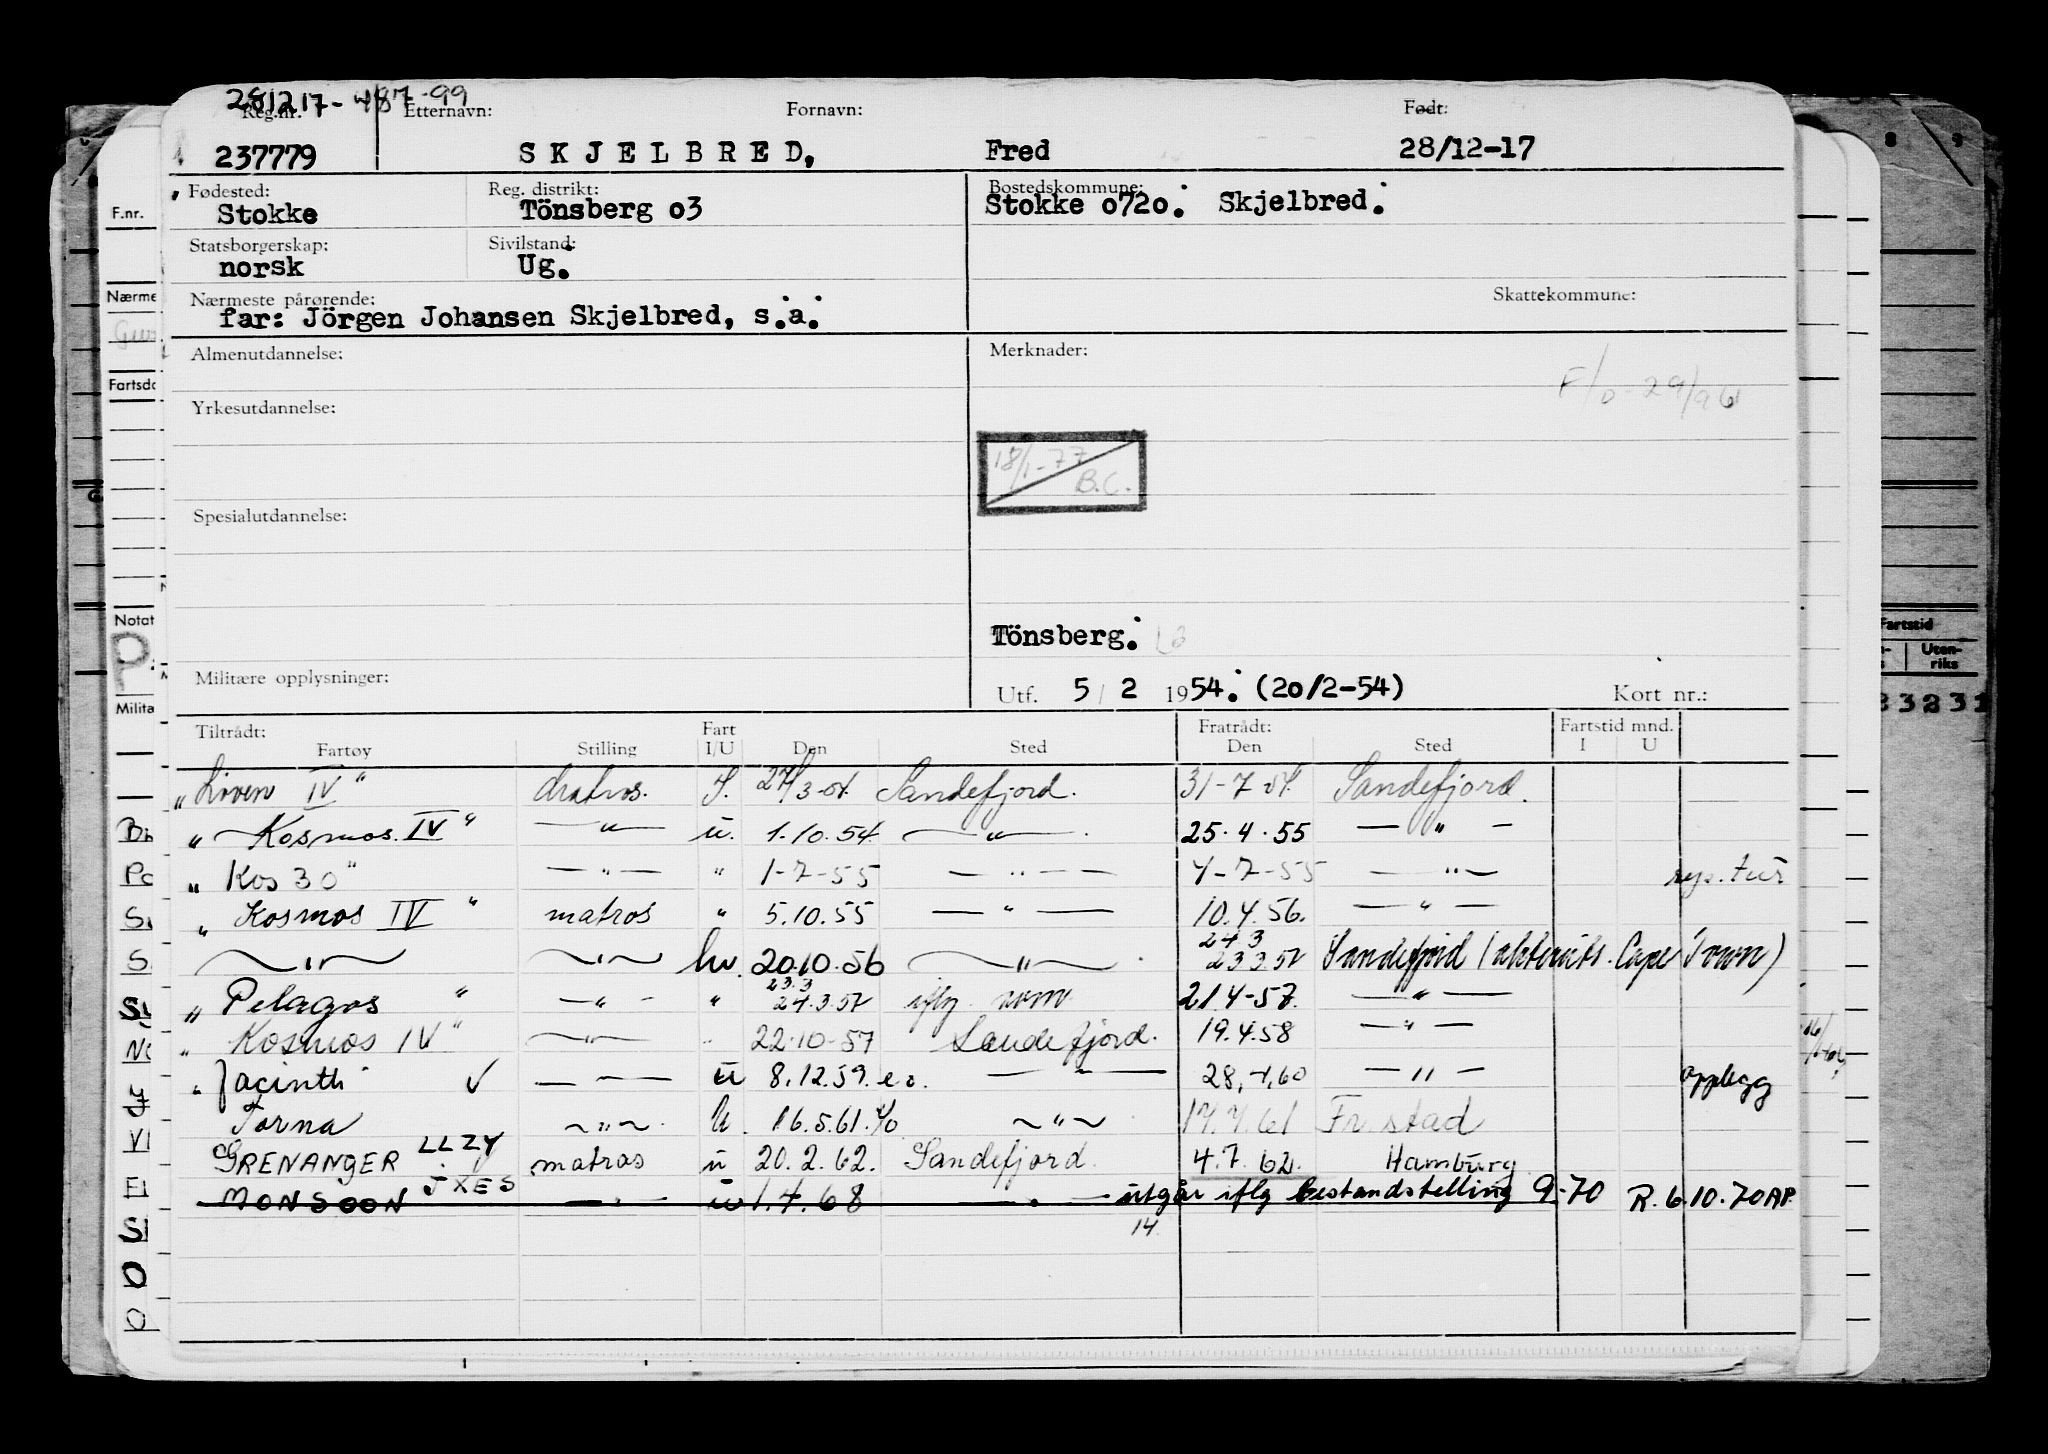 281217-48799
Reg.nr. Etternavn: Fornavn: Født:
237779 SKJELBRED, Fred 28/12-17
Fødested: Reg. distrikt: Bostedskommune:
Stokke Tönsberg o3 Stokke o72o. Skjelbred.
Statsborgerskap: Sivilstand:
norsk Ug.
Nærmeste pårørende: Skattekommune:
far: Jörgen Johansen Skjelbred, s.a.
Almenutdannelse: Merknader:
Yrkesutdannelse:
18/1-77
B.C.
Spesialutdannelse:
Tönsberg.
Militære opplysninger:
Utf. 5/2 1954. (20/2-54) Kort nr.:
Tiltrådt: Fart Fratrådt: Fartstid mnd.
Fartøy Stilling I/U Den Sted Den Sted I U
Sandefjord. 31-7 54. Sandefjord.
" Kosmos IV " — " — u. 1.10.54 — " — 25.4.55 — " —
" Kos 30 " — " — " 1-7-55 — " — 4-7-55 — " — tur
" Kosmos IV " matros " 5.10.55 — " — 10.4.56. — " —
24 3
— " — — " — 20.10.56 — " — 23 3 57 Sandefjord Cape Town)
23.3
" Pelagos " — " — " 24.3.57 iflg 21 4-57. — " —
" Kosmos IV " — " — " 22.10-57 Sandefjord. 19.4.58 — " —
" Jacinth ✓ — " — u 8.12.59. — " — 28.4.60 — " — opplegg
Torna — " — u 16.5.61. — " — 61 Fr.stad
GRENANGER LLZY matros u 20.2.62. Sandefjord. 4.7.62. Hamburg
MONSOON JXES — " — u 1.4.68 — " — utgår iflg bestandstelling 9-70 R. 6.10.70 AP.
14
F.nr.
Nærme
Fartsdo
Notat
P
Milita
Fartstid
Uten-
riks